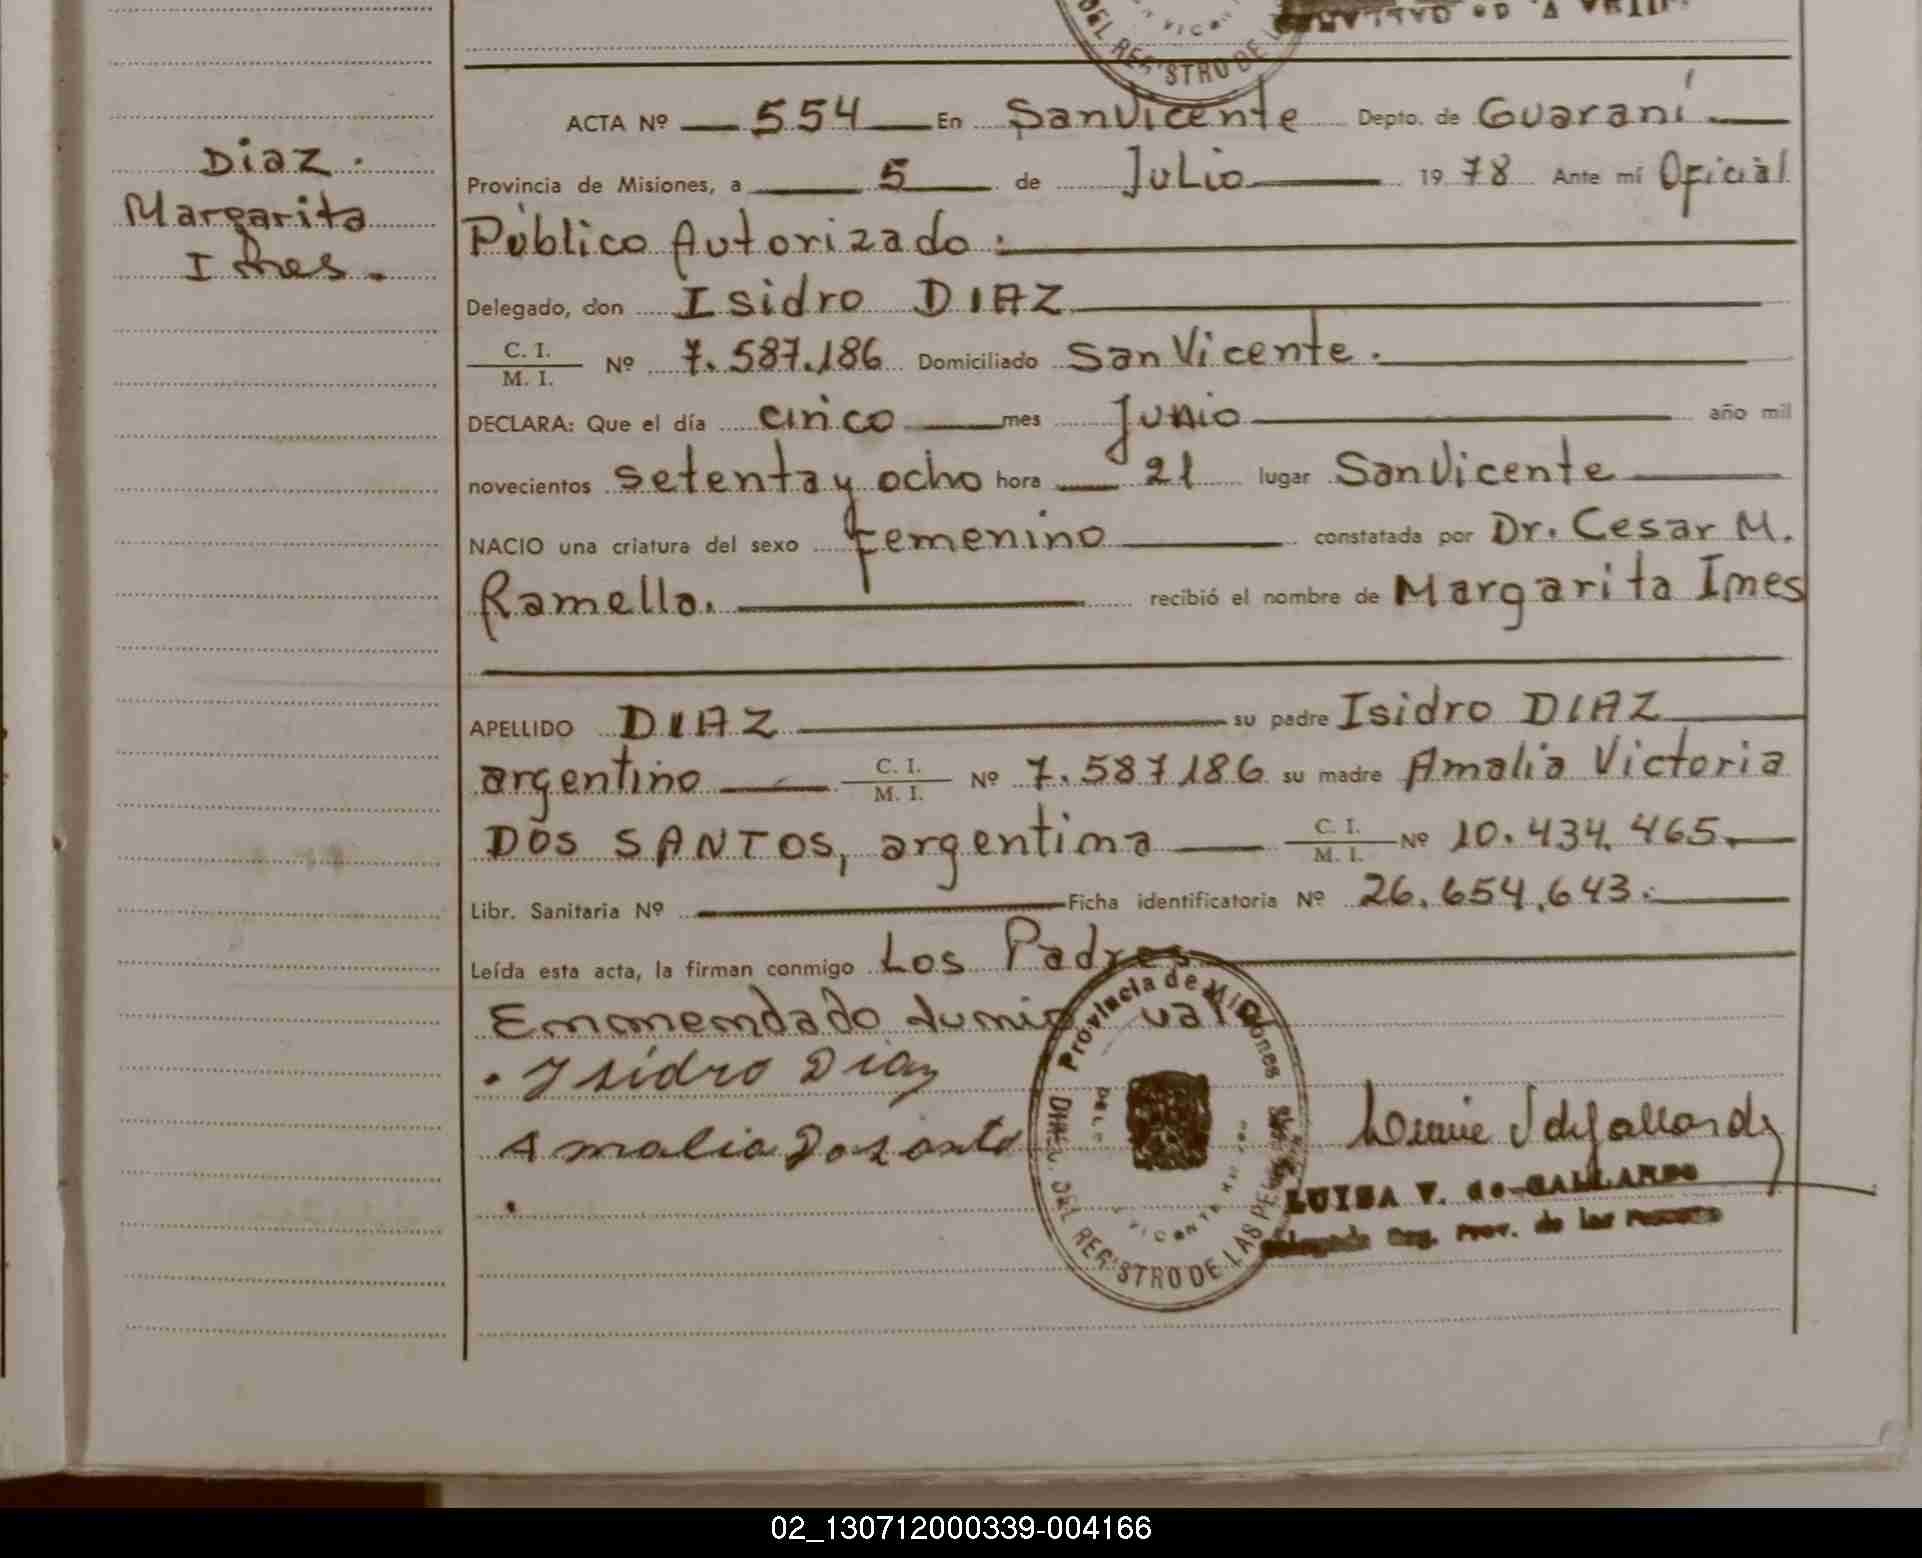 ACTA Nº 554 En San Vicente Depto. de Guaraní
Diaz.
Margarita
Ines.
Provincia de Misiones, a 5 de Julio 1978 Ante mí Oficial
Público Autorizado:
Delegado, don Isidro DIAZ
C. I.
M. I. Nº 7.587.186 Domiciliado San Vicente.
DECLARA: Que el día cinco mes Junio año mil
novecientos setenta y ocho hora 21 lugar San Vicente
NACIO una criatura del sexo femenino constatada por Dr. Cesar M.
Ramello. recibió el nombre de Margarita Ines
APELLIDO DIAZ su padre Isidro DIAZ
argentino C. I.
M. I. Nº 7.587.186 su madre Amalia Victoria
DOS SANTOS, argentina C. I.
M. I. Nº 10.434.465.
Libr. Sanitaria Nº Ficha identificatoria Nº 26.654.643.
Leída esta acta, la firman conmigo Los Padres
Enmendado Junio vale
Isidro Diaz
Amalia Dosanto
Provincia de Misiones
DEL REGISTRO DE LAS
LUISA V. de GALLARDO
Prov. de las
DEL REGISTRO DE
02_130712000339-004166